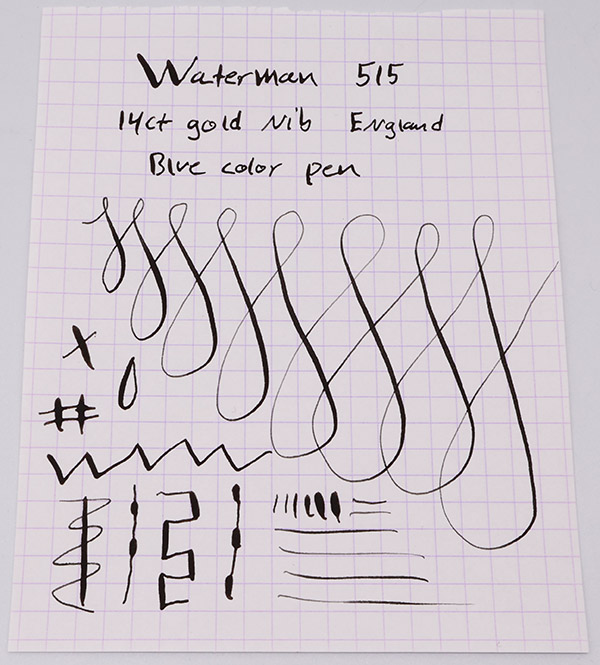 Waterman 515
14ct gold Nib England
Blue color pen
x
#